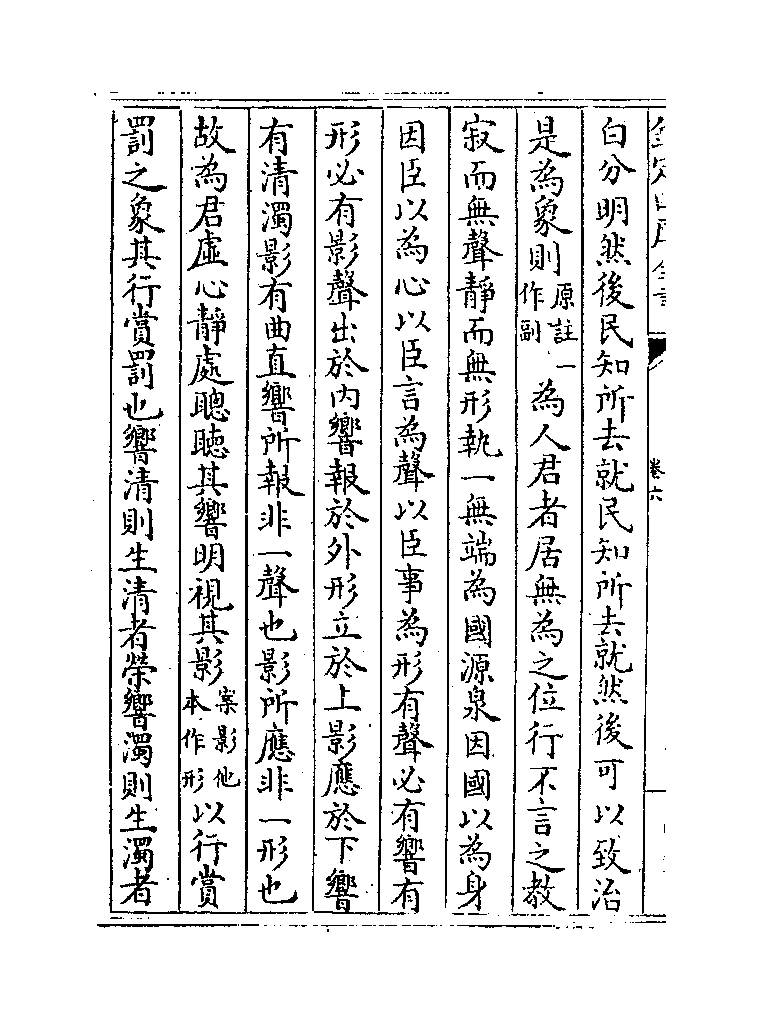 欽定四庫全書
卷六
白分明然後民知所去就民知所去就然後可以致治
是為象則原註一作副為人君者居無為之位行不言之教
寂而無聲靜而無形執一無端為國源泉因國以為身
因臣以為心以臣言為聲以臣事為形有聲必有響有
形必有影聲出於內響報於外形立於上影應於下響
有清濁影有曲直響所報非一聲也影所應非一形也
故為君虛心靜處聰聽其響明視其影案影他本作形以行賞
罰之象其行賞罰也響清則生清者榮響濁則生濁者